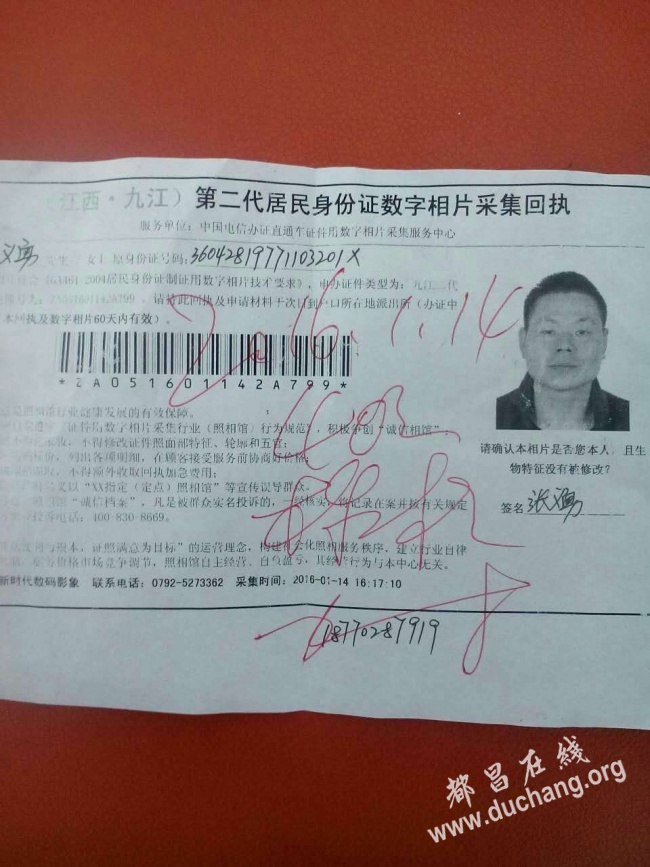 （江西·九江）第二代居民身份证数字相片采集回执
服务单位：中国电信办证直通车证件用数字相片采集服务中心
义勇 先生 / 女士 原身份证号码:36042819771103201X
GA461-2004居民身份证制证用数字相片技术要求》，申办证件类型为：九江二代
ZA051601142A799 ，请持此回执及申请材料于次日到户口所在地派出所（办证中
本回执及数字相片60天内有效）。
2016.1.14
*ZA051601142A799*
是照相馆行业健康发展的有效保障。
证件用数字相片采集行业（照相馆）行为规范》，积极争创“诚信相馆”
不得修改证件照面部特征、轮廓和五官；
列出各项明细，在顾客接受服务前协商好价格；
不得额外收取回执加急费用；
以“XX指定（定点）照相馆”等宣传误导群众。
“诚信档案”，凡是被群众实名投诉的，一经核实，将记录在案并按有关规定
投诉电话：400-830-8669。
请确认本相片是否您本人，且生
物特征没有被修改？
签名 张义勇
为根本，证照满意为目标”的运营理念，构建社会化照相服务秩序，建立行业自律
价格市场竞争调节，照相馆自主经营、自负盈亏，其经营行为与本中心无关。
新时代数码影象 联系电话：0792-5273362 采集时间：2016-01-14 16:17:10
18770287919
都昌在线
www.duchang.org